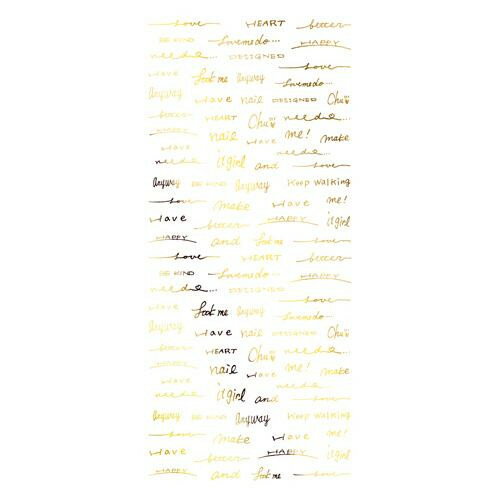 Love HEART better
BE KIND Lovemedo... HAPPY
needle... DESIGNED
Love
have Look me Anyway Lovemedo...
Anyway Have nail DESIGNED Chu
better HEART Chu needle...
HAPPY nail Have me! make
have needle...
needle it girl and Love
Anyway BE KIND Anyway Keep walking
Love make Have me!
Have better HAPPY it girl
HAPPY and Look me better
Love HEART better
BE KIND Lovemedo... HAPPY
needle... DESIGNED
Love
have Look me Anyway Lovemedo...
Anyway Have nail DESIGNED Chu
better HEART Chu needle...
HAPPY nail Have me! make
have needle...
needle it girl and Love
Anyway BE KIND Anyway Keep walking
Love make Have me!
Have better HAPPY it girl
HAPPY and Look me Love